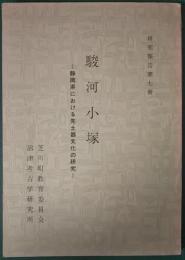 研究報告第七冊
駿河小塚
―静岡県における先土器文化の研究―
芝川町教育委員会
沼津考古学研究所